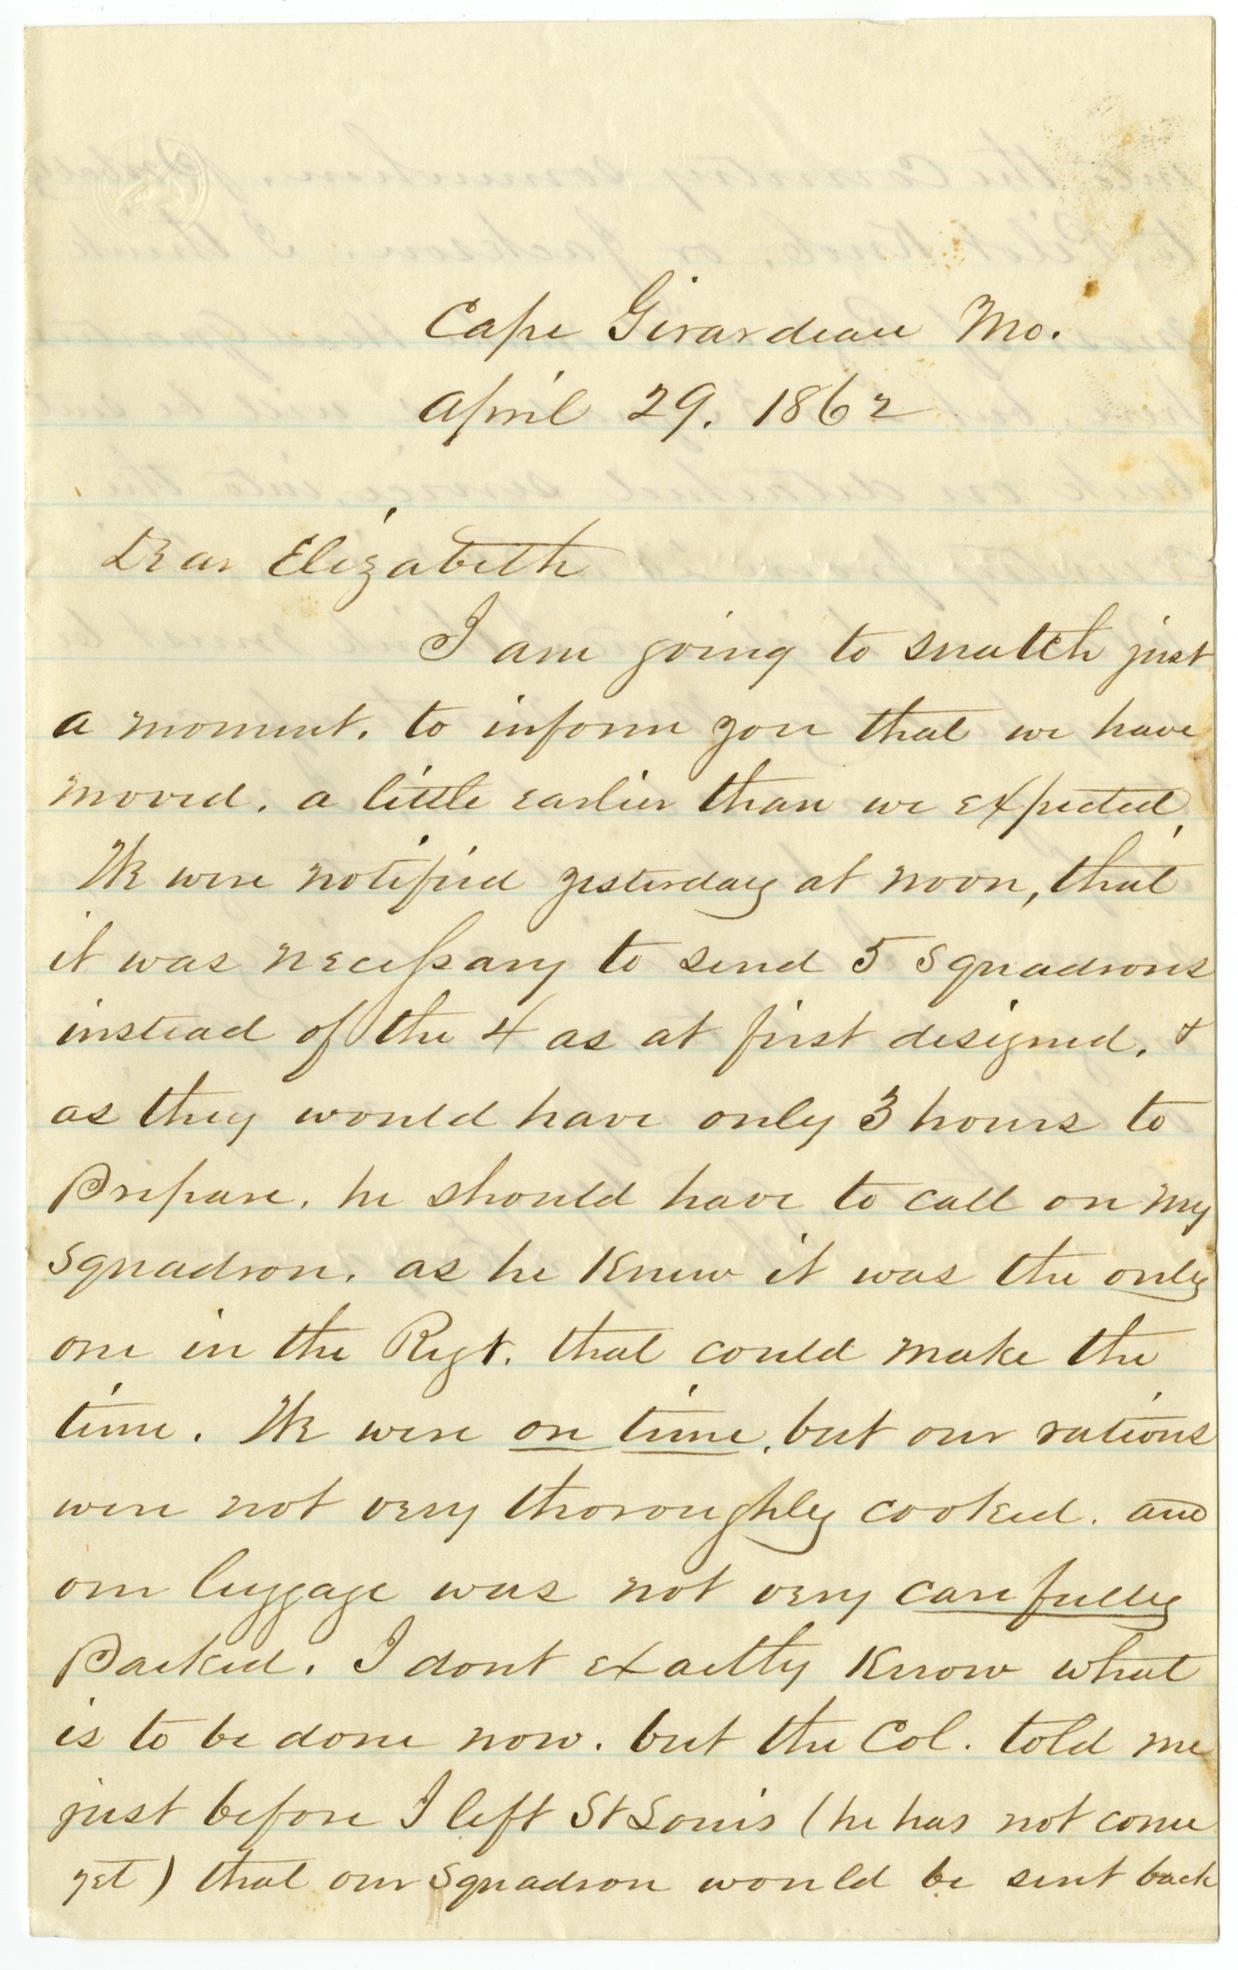 Cape Girardeau Mo.
April 29. 1862
Dear Elizabeth
I am going to snatch just
a moment. to inform you that we have
moved. a little earlier than we expected.
We were notified yesterday at noon, that
it was necessary to send 5 Squadrons
instead of the 4 as at first designed. &
as they would have only 3 hours to
Prepare. he should have to call on my
Squadron. as he Knew it was the only
one in the Regt. that could make the
time. We were on time. but our rations
were not very thoroughly cooked. and
our luggage was not very carefully
Packed. I dont exactly Know what
is to be done now. but the Col. told me
just before I left St Louis (he has not come
yet) that our Squadron would be sent back